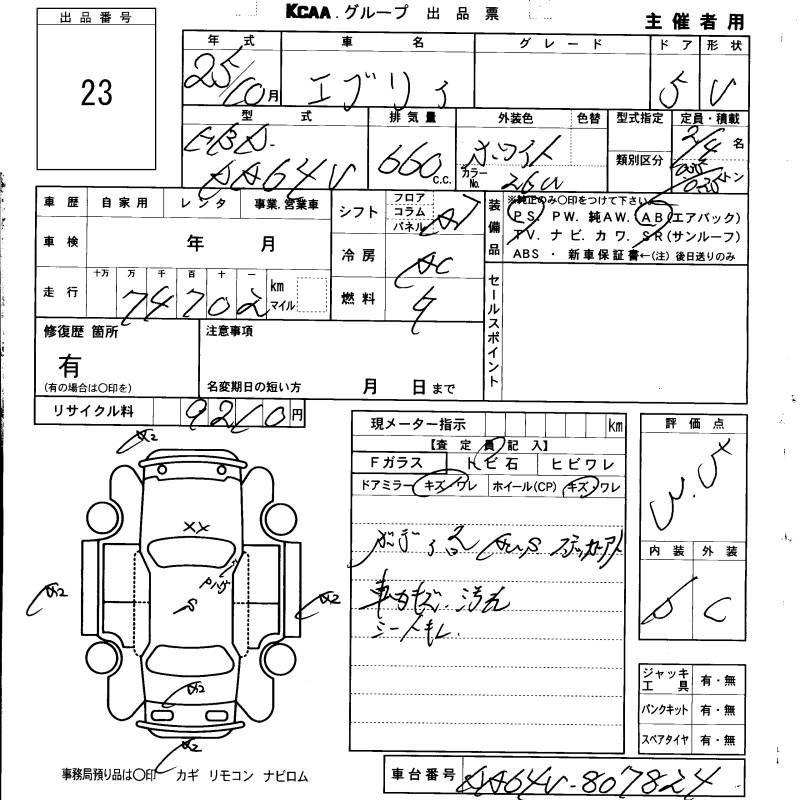 KCAA グループ 出品票
主催者用
出品番号
23
年式 車名 グレード ドア 形状
25/10月 エブリィ 5 V
型式 排気量 外装色 色替 型式指定 定員・積載
EBD-DA64V 660 c.c. ホワイト カラーNo. 26U 類別区分 2/4名 トン
車歴 自家用 レンタ 事業.営業車
シフト フロア コラム パネル AT
装備品 ※純正のみ○印をつけて下さい
PS. PW. 純AW. AB(エアバック)
TV. ナビ. カワ. SR(サンルーフ)
ABS ・ 新車保証書←(注)後日送りのみ
車検 年 月
冷房 AC
走行 十万 万 千 百 十 一
74702 km マイル
燃料
セールスポイント
修復歴 箇所 注意事項
有
(有の場合は○印を) 名変期日の短い方 月 日まで
リサイクル料 9210円
現メーター指示 km
【査定員記入】
Fガラス トビ石 ヒビワレ
ドアミラー キズ・ワレ ホイール(CP) キズ・ワレ
評価点
内装 外装
D C
A2
XX
Pハゲ
S
A2
A2
A2
A2
車内キズ.汚れ
シートキレ.
ジャッキ工具 有・無
パンクキット 有・無
スペアタイヤ 有・無
事務局預り品は○印 カギ リモコン ナビロム
車台番号 DA64V-807824